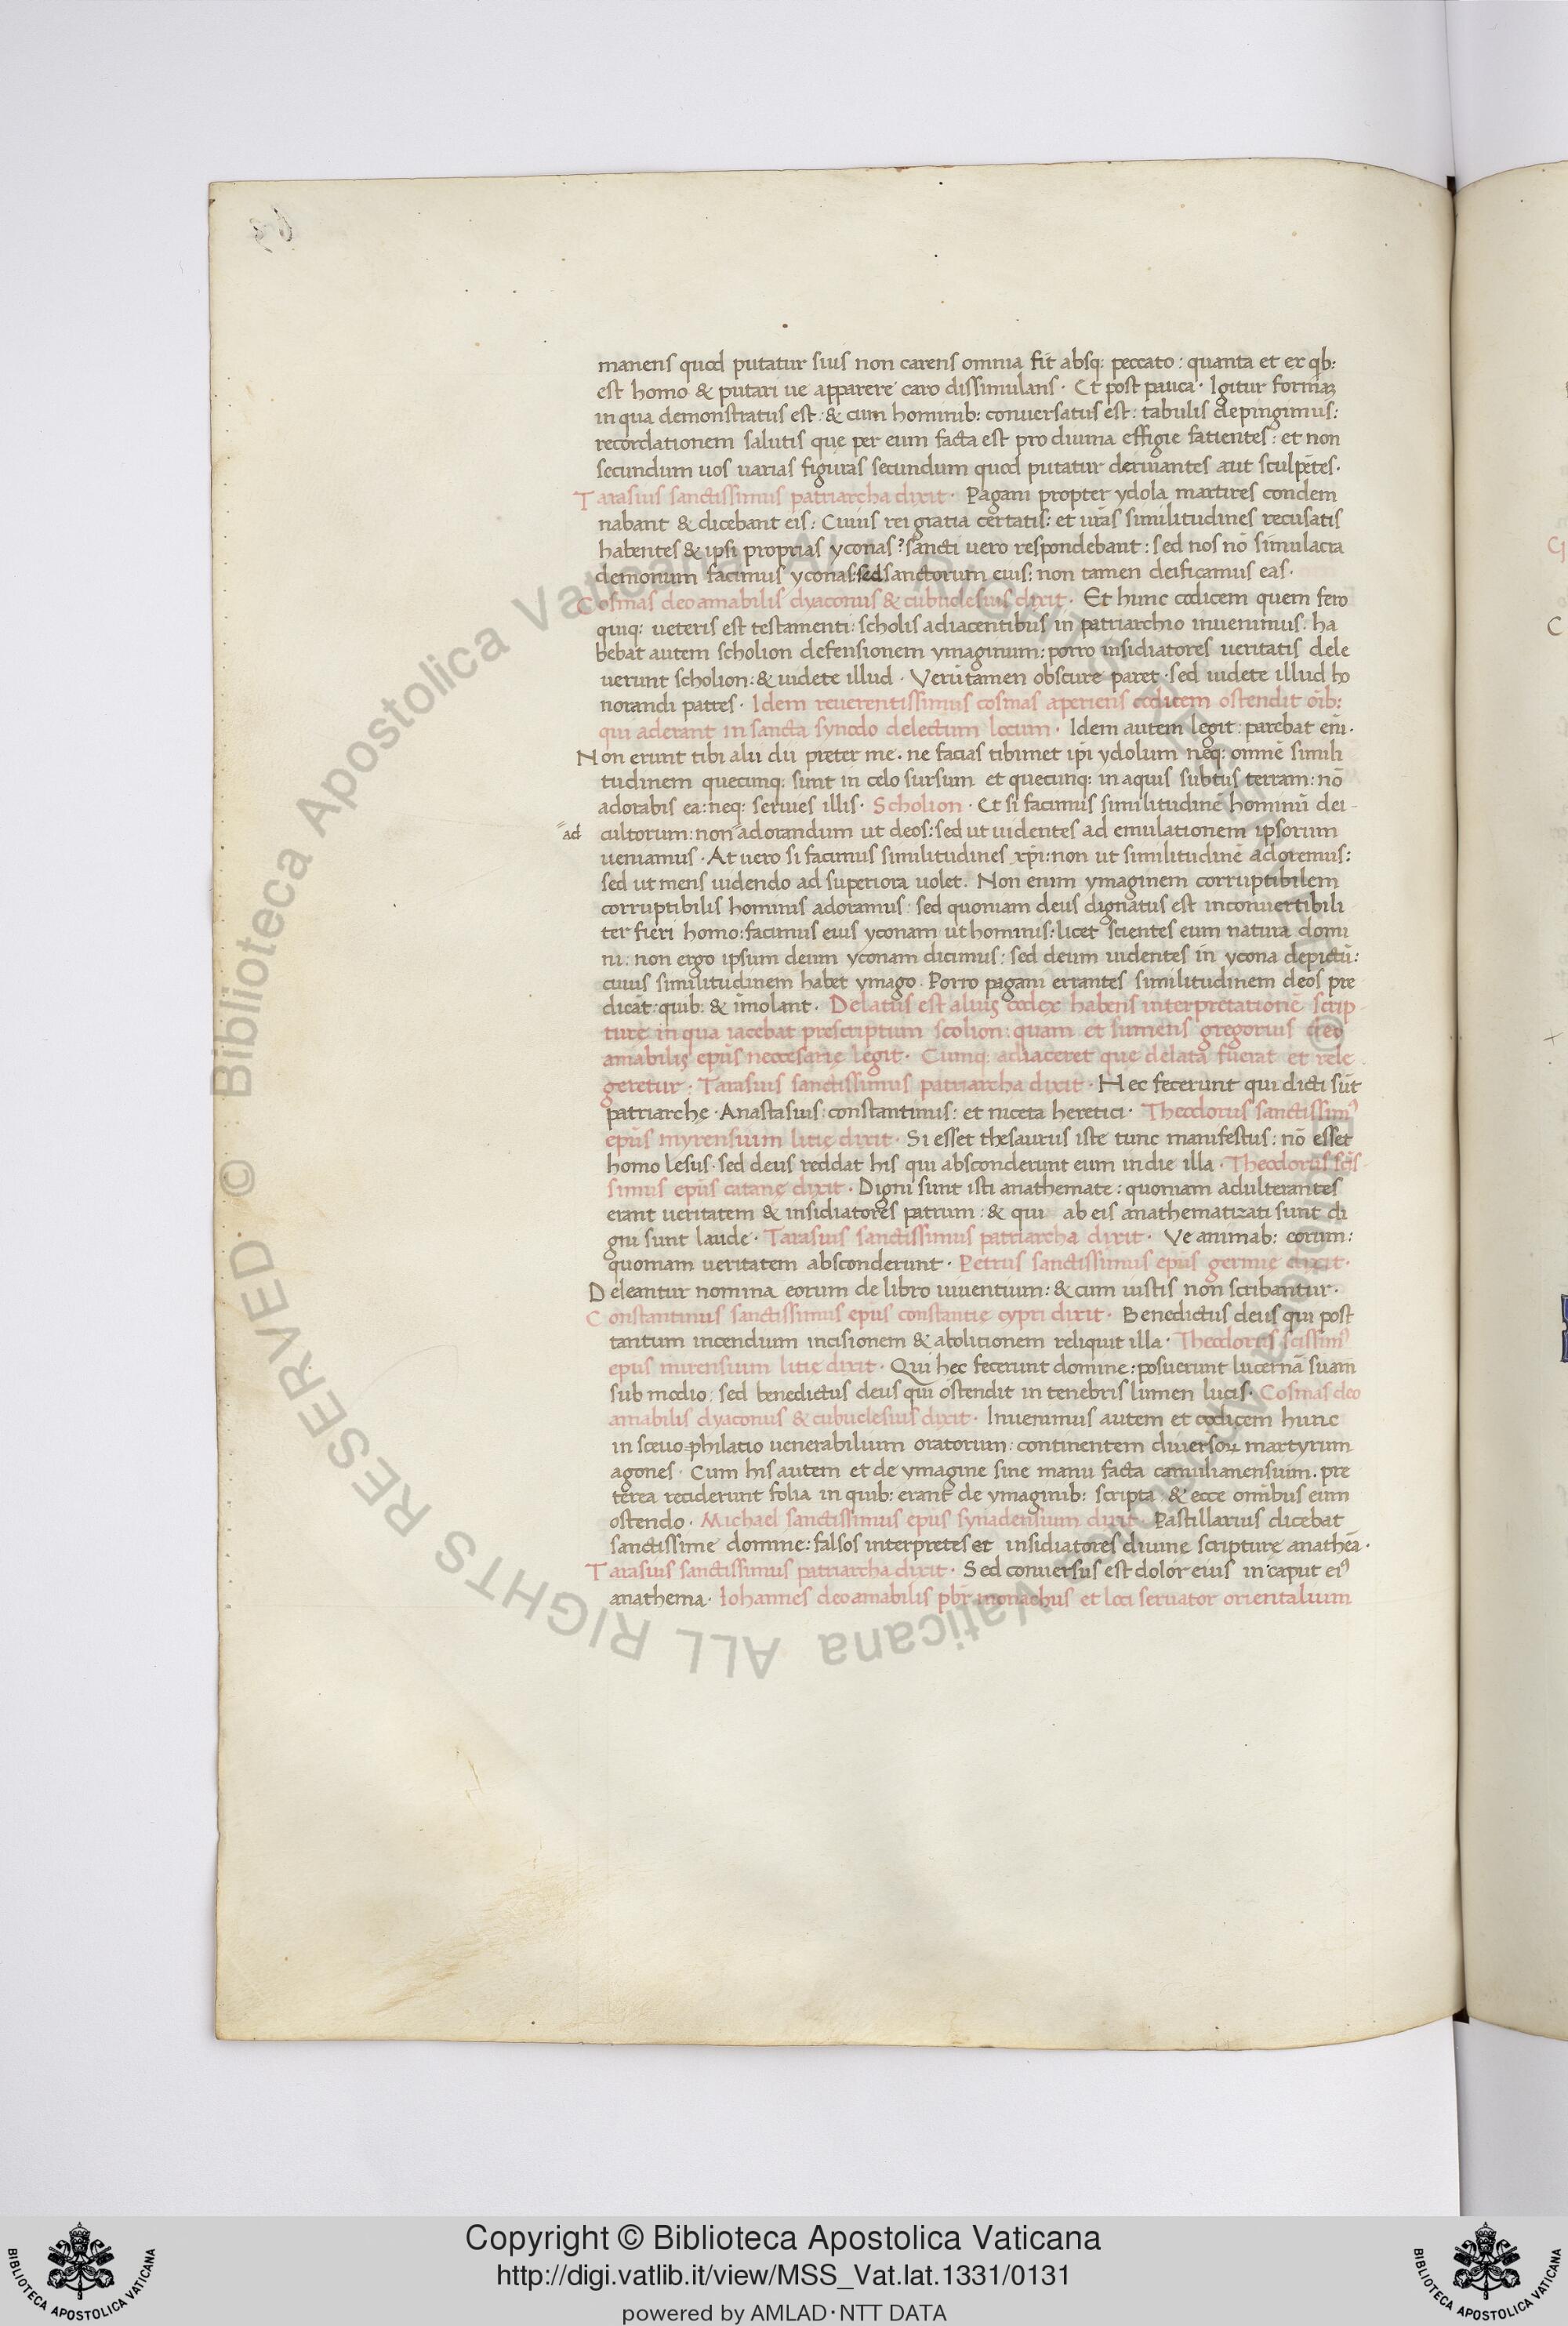 manens quod putatur siuis non carens omnia fit absq: peccato: quanta et ex qb:
est homo & putari ue apparere caro dissimulans · Et post pauca · Igitur formaꝫ
in qua demonstratus est: & cum hominib: conuersatus est: tabulis depingimus:
recordationem salutis que per eum facta est pro diuina effigie fatientes: et non
secundum uos uarias figuras secundum quod putatur deriuantes aut sculpētes·
Tarasius sanctissimus patriarcha dixit · Pagani propter ydola martires condem
nabant & dicebant eis: Cuius rei gratia certatis: et urās similitudines recusatis
habentes & ipsi proprias yconas? sancti uero respondebant: sed nos nō simulacra
demonum facimus yconas: sed sanctorum eius: non tamen deificamus eas·
Cosmas deo amabilis dyaconus & cubuclesius dixit · Et hunc codicem quem fero
quiq: ueteris est testamenti: scholis adiacentibus in patriarchio inuenimus: ha
bebat autem scholion defensionem ymaginum: porro insidiatores ueritatis dele
uerunt scholion: & uidete illud · Verūtamen obscure paret · sed uidete illud ho
norandi patres · Idem reuerentissimus cosmas aperiens codicem ostendit oīb:
qui aderant in sancta synodo delectum locum · Idem autem legit: parebat eni·
Non erunt tibi alii dii preter me · ne facias tibimet ipī ydolum neq: omnē simili
tudinem quecunq: sunt in celo sursum et quecunq: in aquis subtus terram: nō
adorabis ea: neq: seruies illis · Scholion · Et si facimus similitudinē hominū dei-
ad cultorum: non adorandum ut deos: sed ut uidentes ad emulationem ipsorum
ueniamus · At uero si facimus similitudines xp̄i: non ut similitudinē adoremus:
sed ut mens uidendo ad superiora uolet. Non enim ymaginem corruptibilem
corruptibilis hominis adoramus: sed quoniam deus dignatus est inconuertibili
ter fieri homo: facimus eius yconam ut hominis: licet scientes eum natura domi
ni: non ergo ipsum deum yconam dicimus: sed deum uidentes in ycona depictū:
cuius similitudinem habet ymago · Porro pagani errantes similitudinem deos pre
dicāt: quib: & īmolant · Delatus est alius codex habens interpretationē scrip-
turę in qua iacebat prescriptum scolion: quam et sumens gregorius deo
amabilis epūs neocesarię legit · Cunq: adiaceret que delata fuerat et rele
geretur: Tarasius sanctissimus patriarcha dixit · Hec fecerunt qui dicti sūt
patriarchę · Anastasius: constantinus: et niceta heretici · Theodorus sanctissimꝰ
epūs myrensium litię dixit · Si esset thesaurus iste tunc manifestus: nō esset
homo lesus · sed deus reddat his qui absconderunt eum in die illa · Theodorus sc̄is-
simus epūs catanę dixit · Digni sunt isti anathemate: quoniam adulterantes
erant ueritatem & insidiatores patrum: & qui ab eis anathematizati sunt di
gni sunt laude · Tarasius sanctissimus patriarcha dixit · Ve animab: eorum:
quoniam ueritatem absconderunt · Petrus sanctissimus epūs germię dixit ·
Deleantur nomina eorum de libro uiuentium: & cum iustis non scribantur ·
Constantinus sanctissimus epūs constantię cypri dixit · Benedictus deus qui post
tantum incendium incisionem & abolitionem reliquit illa · Theodorus sc̄issimꝰ
epūs mirensium litię dixit · Qui hec fecerunt domine: posuerunt lucernā suam
sub modio: sed benedictus deus qui ostendit in tenebris lumen lucis · Cosmas deo
amabilis dyaconus & cubuclesius dixit · Inuenimus autem et codicem hunc
in sceuo=philatio uenerabilium oratorum: continentem diuersoꝝ martyrum
agones · Cum his autem et de ymagine sine manu facta camulianensium · pre
terea reciderunt folia in quib: erant de ymaginib: scripta: & ecce omībus eum
ostendo · Michael sanctissimus epūs synadensium dixit · Pastillarius dicebat
sanctissime domine: falsos interpretes et insidiatores diuine scripturę anathēa·
Tarasius sanctissimus patriarcha dixit · Sed conuersus est dolor eius in caput eiꝰ
anathema · Iohannes deo amabilis pbr̄ monachus et loci seruator orientalium
Copyright © Biblioteca Apostolica Vaticana
http://digi.vatlib.it/view/MSS_Vat.lat.1331/0131
powered by AMLAD·NTT DATA
BIBLIOTECA APOSTOLICA VATICANA
BIBLIOTECA APOSTOLICA VATICANA
© Biblioteca Apostolica Vaticana ALL RIGHTS RESERVED
© Biblioteca Apostolica Vaticana ALL RIGHTS RESERVED